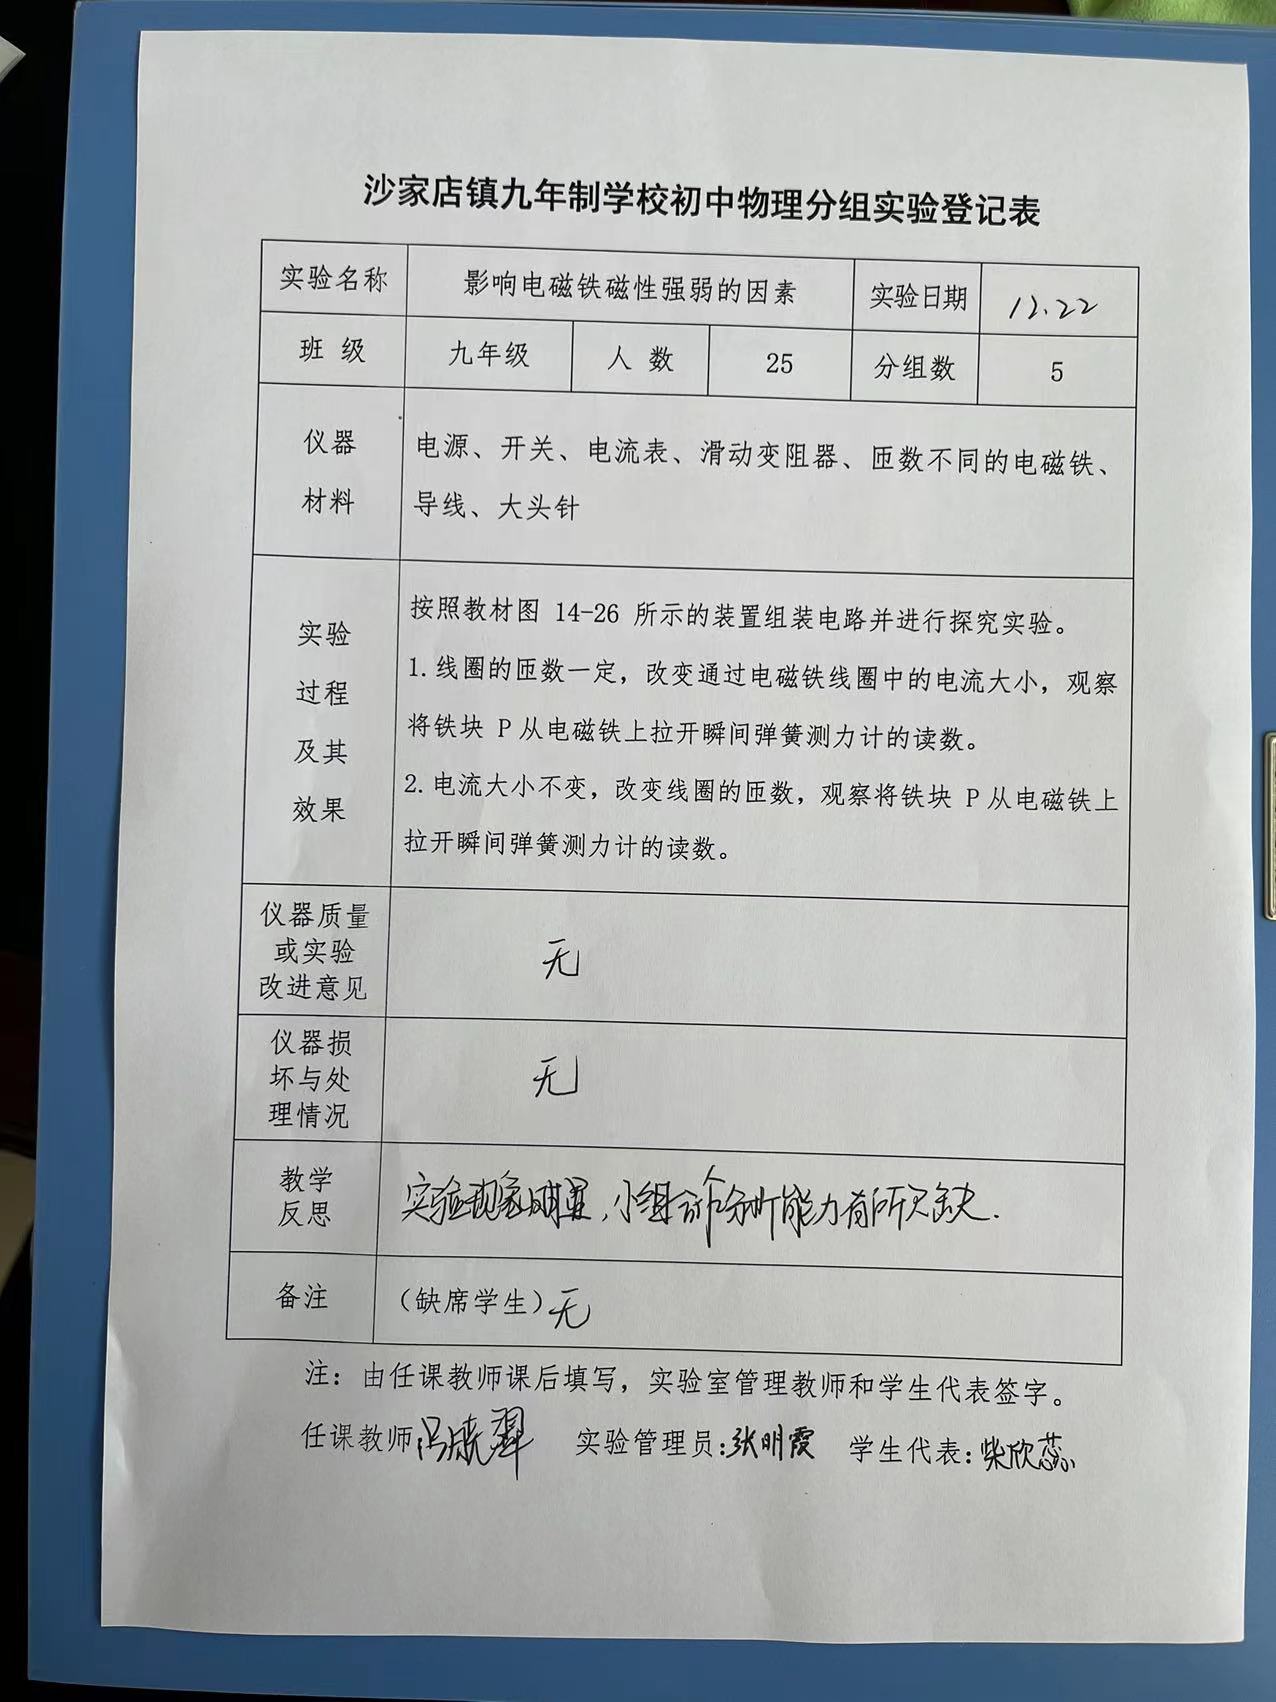 沙家店镇九年制学校初中物理分组实验登记表
实验名称 影响电磁铁磁性强弱的因素 实验日期 12.22
班 级 九年级 人 数 25 分组数 5
仪器
材料
电源、开关、电流表、滑动变阻器、匝数不同的电磁铁、
导线、大头针
实验
过程
及其
效果
按照教材图 14-26 所示的装置组装电路并进行探究实验。
1.线圈的匝数一定，改变通过电磁铁线圈中的电流大小，观察
将铁块 P 从电磁铁上拉开瞬间弹簧测力计的读数。
2.电流大小不变，改变线圈的匝数，观察将铁块 P 从电磁铁上
拉开瞬间弹簧测力计的读数。
仪器质量
或实验
改进意见
无
仪器损
坏与处
理情况
无
教学
反思
实验现象明显，小组合作分析能力有所欠缺.
备注 （缺席学生）无
注：由任课教师课后填写，实验室管理教师和学生代表签字。
任课教师 冯晓 实验管理员：张明霞 学生代表：柴欣蕊